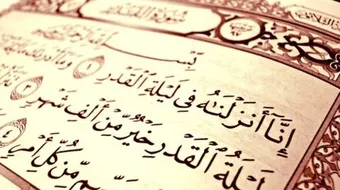 سورة القدر
بِسْمِ
إِنَّا أَنزَلْنَٰهُ فِى لَيْلَةِ ٱلْقَدْرِ ١ وَمَآ أَدْرَىٰ
لَيْلَةُ ٱلْقَدْرِ خَيْرٌ مِّنْ أَلْفِ شَهْرٍ ٣
مِّن كُلِّ أَمْرٍ ٤